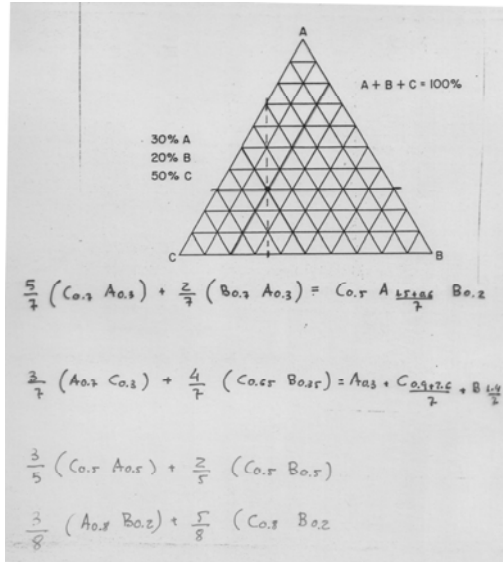 A
A + B + C = 100%
30% A
20% B
50% C
C
B
5/7 (C0.7 A0.3) + 2/7 (B0.7 A0.3) = C0.5 A 1.5+0.6/7 B0.2
3/7 (A0.7 C0.3) + 4/7 (C0.65 B0.35) = A0.3 + C 0.9+2.6/7 + B 1.4/7
3/5 (C0.5 A0.5) + 2/5 (C0.5 B0.5)
3/8 (A0.8 B0.2) + 5/8 (C0.8 B0.2